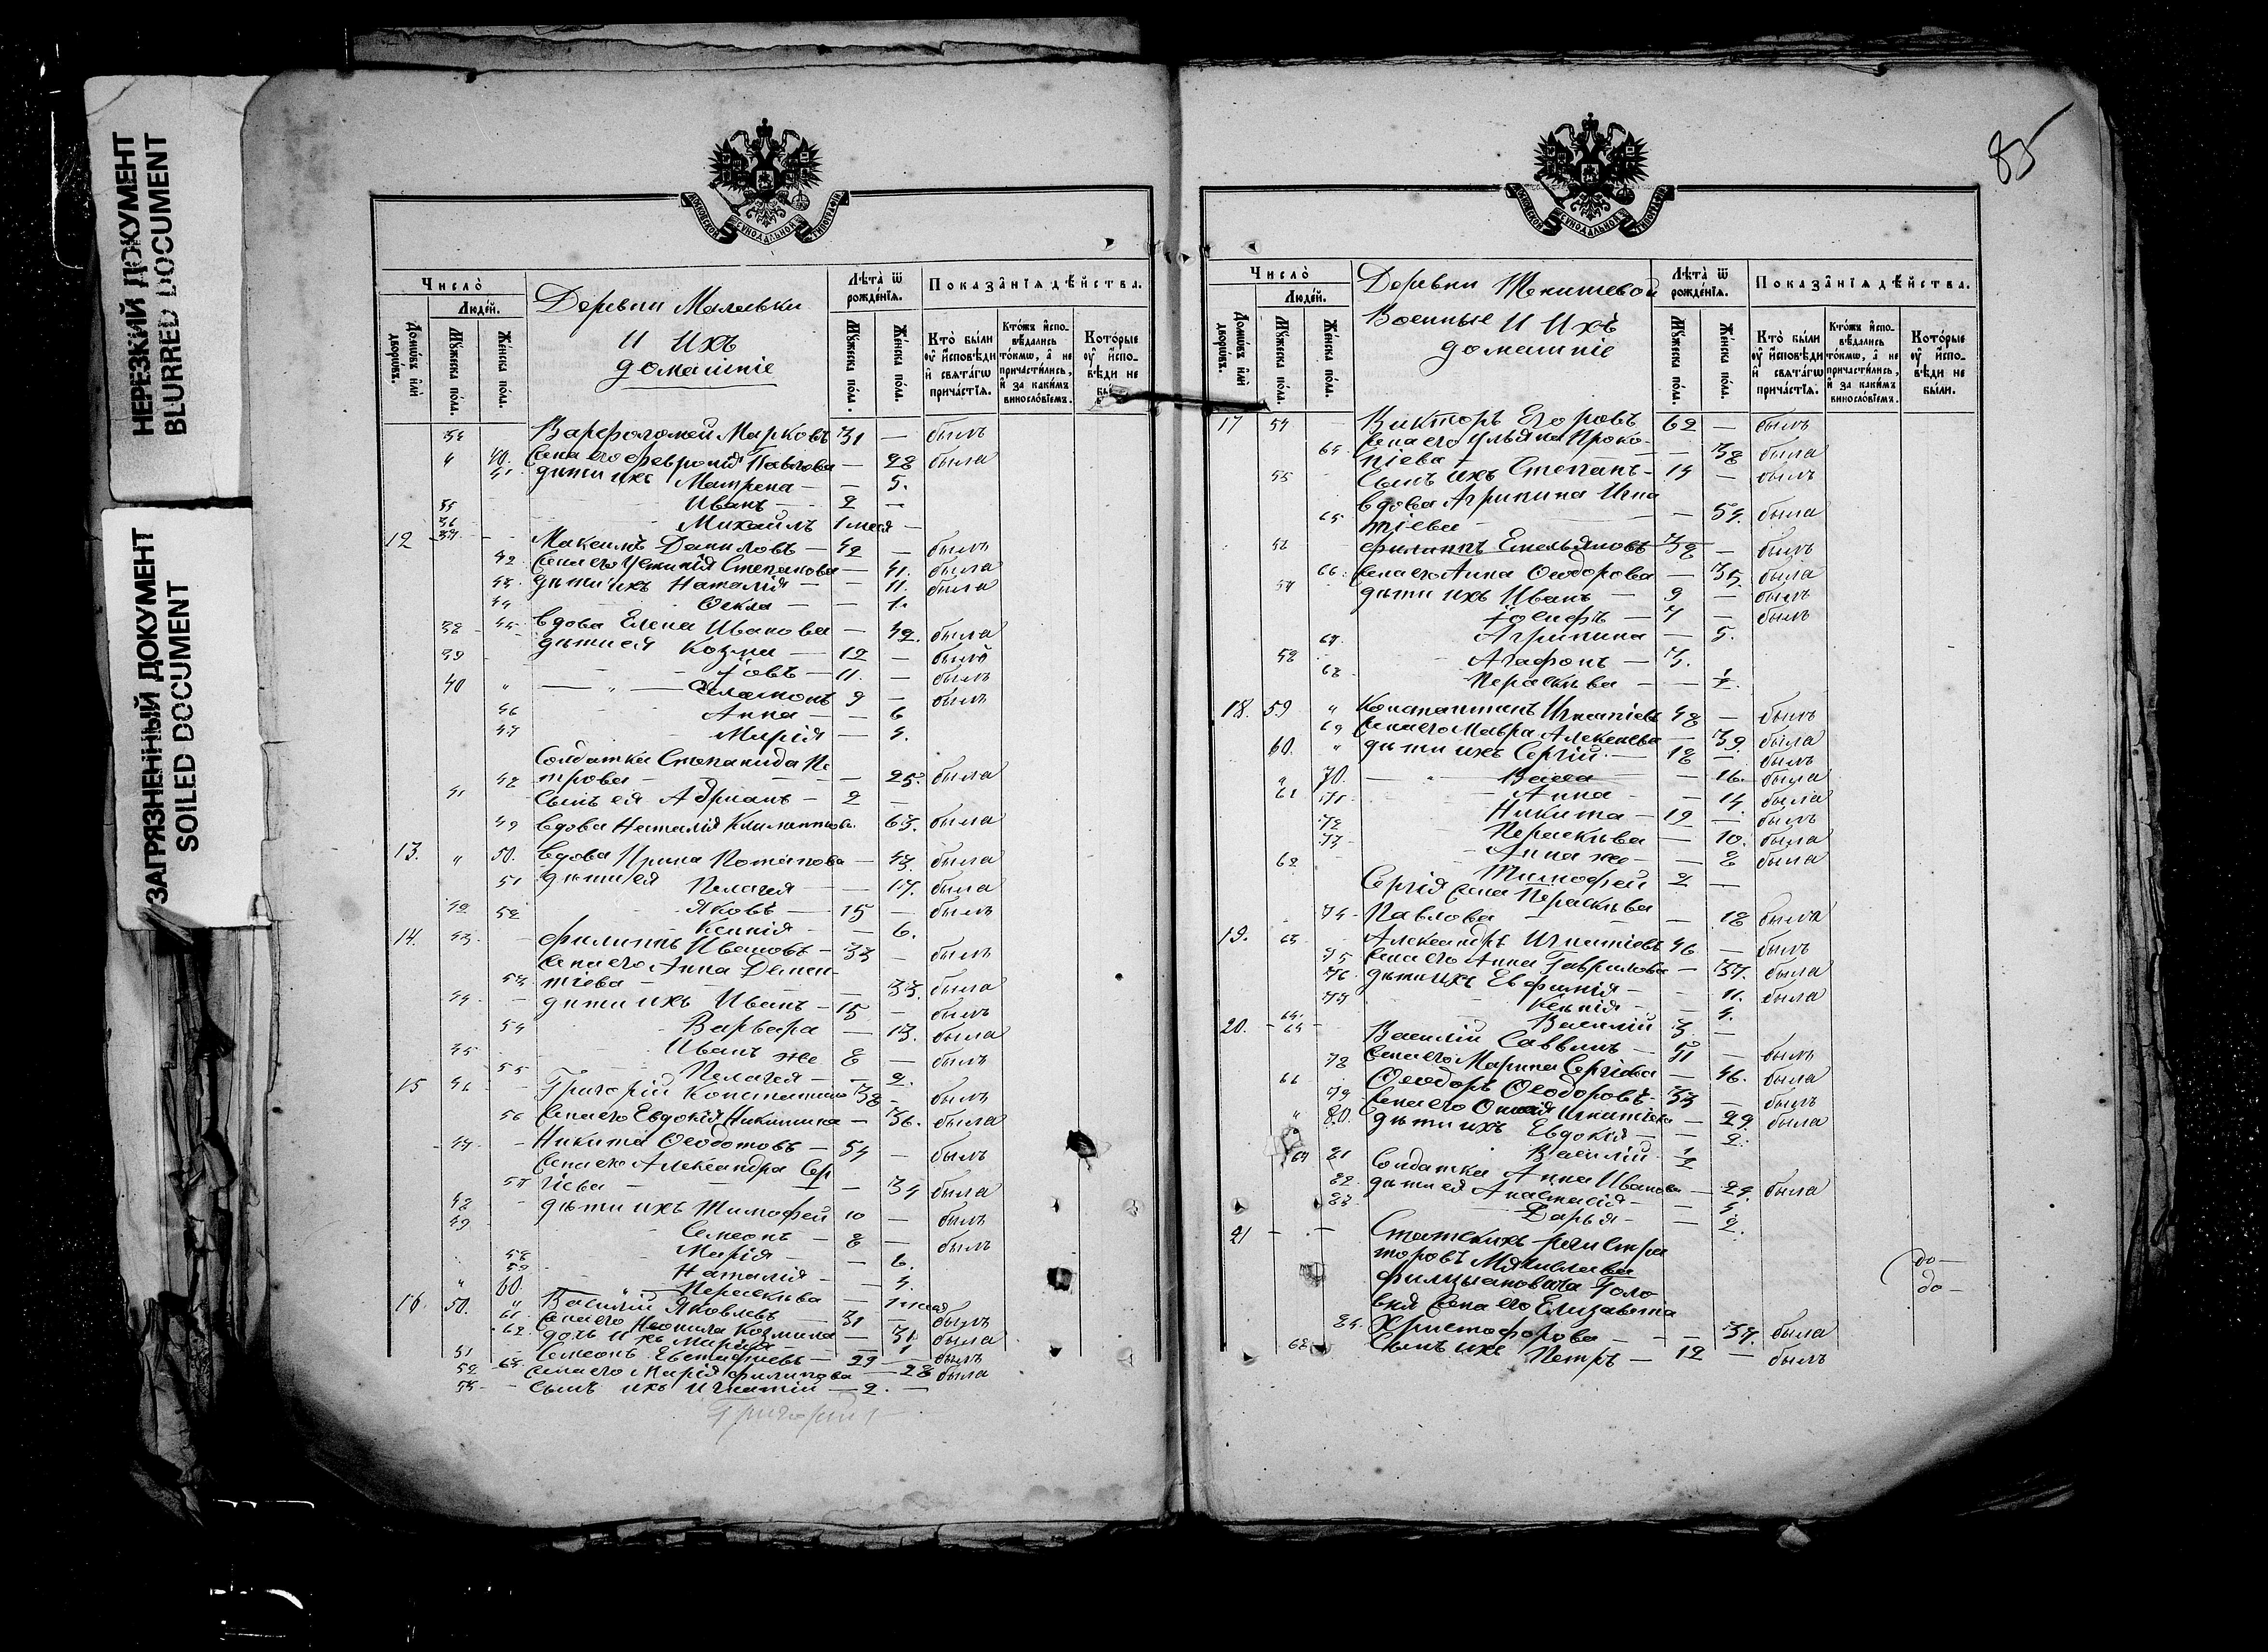 НЕРЕЗКИЙ ДОКУМЕНТ
BLURRED DOCUMENT
ЗАГРЯЗНЕННЫЙ ДОКУМЕНТ
SOILED DOCUMENT
МОСКОВСКОЙ СѴНОДАЛЬНОЙ ТИПОГРАФІИ
Число̀
Людей.
Домѡвъ илѝ дворѡвъ.
Мꙋжеска пола.
Женска пола.
Деревни
и ихъ
домашніе
Лѣта̀ ѿ рожденїѧ.
Мꙋжеска пола.
Женска пола.
Показанїѧ дѣйства.
Кто̀ были ᲂу҆ исповѣди и свѧтагѡ причастїѧ.
Ктожъ исповѣдались токмѡ, а не причастились, и за какимъ винословїемъ.
Которые ᲂу҆ исповѣди не были.
34 Варфоломей Марковъ 31 — былъ
40. Жена его Февронія Павлова — 28 была
41 дѣти ихъ Матрена — 5.
35 Иванъ — 2 —
36 Михаилъ 1 меся —
12 37 Максимъ Даниловъ — 42 — былъ
42 Жена его Устинія Степанова — 41. была
43. дѣти ихъ Наталія — 11. была
44 Ѳекла — 1.
45 вдова Елена Иванова — 42. была
38 дѣти ея Козма — 12 — былъ
39 Іовъ — 11. — былъ
40 " — " — 9 — былъ
46 Анна — 6
47 Марія — 4.
Солдатка Степанида Пе
48 трова — 25. была
41 сынъ ея Адріанъ — 2 —
49 вдова Наталія 63. была
13. " 50. вдова Ирина Потапова — 43. была
51 дѣти ея Пелагея — 17. была
42 Яковъ — 15 — былъ
52 Ксенія — 6.
14. 43. Филиппъ Ивановъ — 33 — былъ
Жена его Анна Демен-
53. тіева — 33. была
44. дѣти ихъ Иванъ — 15 — былъ
54 Варвара — 13. была
45 Иванъ же 8 — былъ
55 Пелагея — 2.
15 46 Григорій Константино 38 — былъ
56 Жена его Евдокія Никитина — 36. была
47. Никита Ѳеодотовъ — 54 — былъ
Жена его Александра Сер
57 гіева — 34 была
48 дѣти ихъ Тимофей 10 — былъ
49 Семеонъ — 8 — былъ
58 Марія — 6.
59 Наталія — 4.
" 60. Параскева —
16. 50. Василій Яковлевъ 31 — былъ
61. Жена его Козмина — 31 была
62. дочь ихъ Марія — 1
51 Семеонъ Евстафіевъ — 29 — былъ
52 63. Жена его Марія Филипова — 28 была
53 — сынъ ихъ Игнатій — 2. —
Григорій
85
МОСКОВСКОЙ СѴНОДАЛЬНОЙ ТИПОГРАФІИ
Число̀
Людей.
Домѡвъ илѝ дворѡвъ.
Мꙋжеска пола.
Женска пола.
Деревни
Военные и ихъ
домашніе
Лѣта̀ ѿ рожденїѧ.
Мꙋжеска пола.
Женска пола.
Показанїѧ дѣйства.
Кто̀ были ᲂу҆ исповѣди и свѧтагѡ причастїѧ.
Ктожъ исповѣдались токмѡ, а не причастились, и за какимъ винословїемъ.
Которые ᲂу҆ исповѣди не были.
17 54 Викторъ Егоровъ 62 — былъ
Жена его Ульяна Проко-
64. піева — 38 была
55 Сынъ ихъ Степанъ — 14 — былъ
вдова Агрипина Игна
65 тіева — 54. была
56 Филиппъ Емельяновъ 38 — былъ
66. Жена его Анна Ѳеодорова — 35. была
57 дѣти ихъ Иванъ — 9 — былъ
Іосифъ — 7 — былъ
67. Агрипина — 5.
58 Агафонъ — 3.
68. Параскева — ½.
18. 59 " Константинъ Игнатіевъ 48 — былъ
69 Жена его Мавра Алексеева — 39. была
60. " дѣти ихъ Сергій. — 18 — былъ
" 70. — " — 16. была
61 71. Анна — 14 была
Никита — 12 — былъ
72 Параскева — 10. была
73 Анна же — 8 была
62 Тимофей 2 —
Сергія жена Параскева
74. Павлова — 18 была
19. 63. Александръ Игнатіевъ 46 — былъ
75 Жена его Анна Гаврилова — 37. была
76. дѣти ихъ Евфимія — 11. была
77 Ксенія — 4.
64. Василій 3. —
20. 65 Василій Саввинъ — 51 — былъ
78 Жена его Марина Сергіева — 46. была
66 Ѳеодоръ Ѳеодоровъ — 33 — былъ
79 Жена его Игнатіева — 29. была
" 80. дѣти ихъ Евдокія — 2.
67 Василій. ½
81 Солдатка Анна Иванова — 24. была
82. дѣти ея Анастасія — 4.
83. Дарья — 2.
21 — —
Филиціановича Голо
Жена его Елизавета
84. Христофорова — 37. была
68 Сынъ ихъ Петръ — 12 — былъ
до —
до —